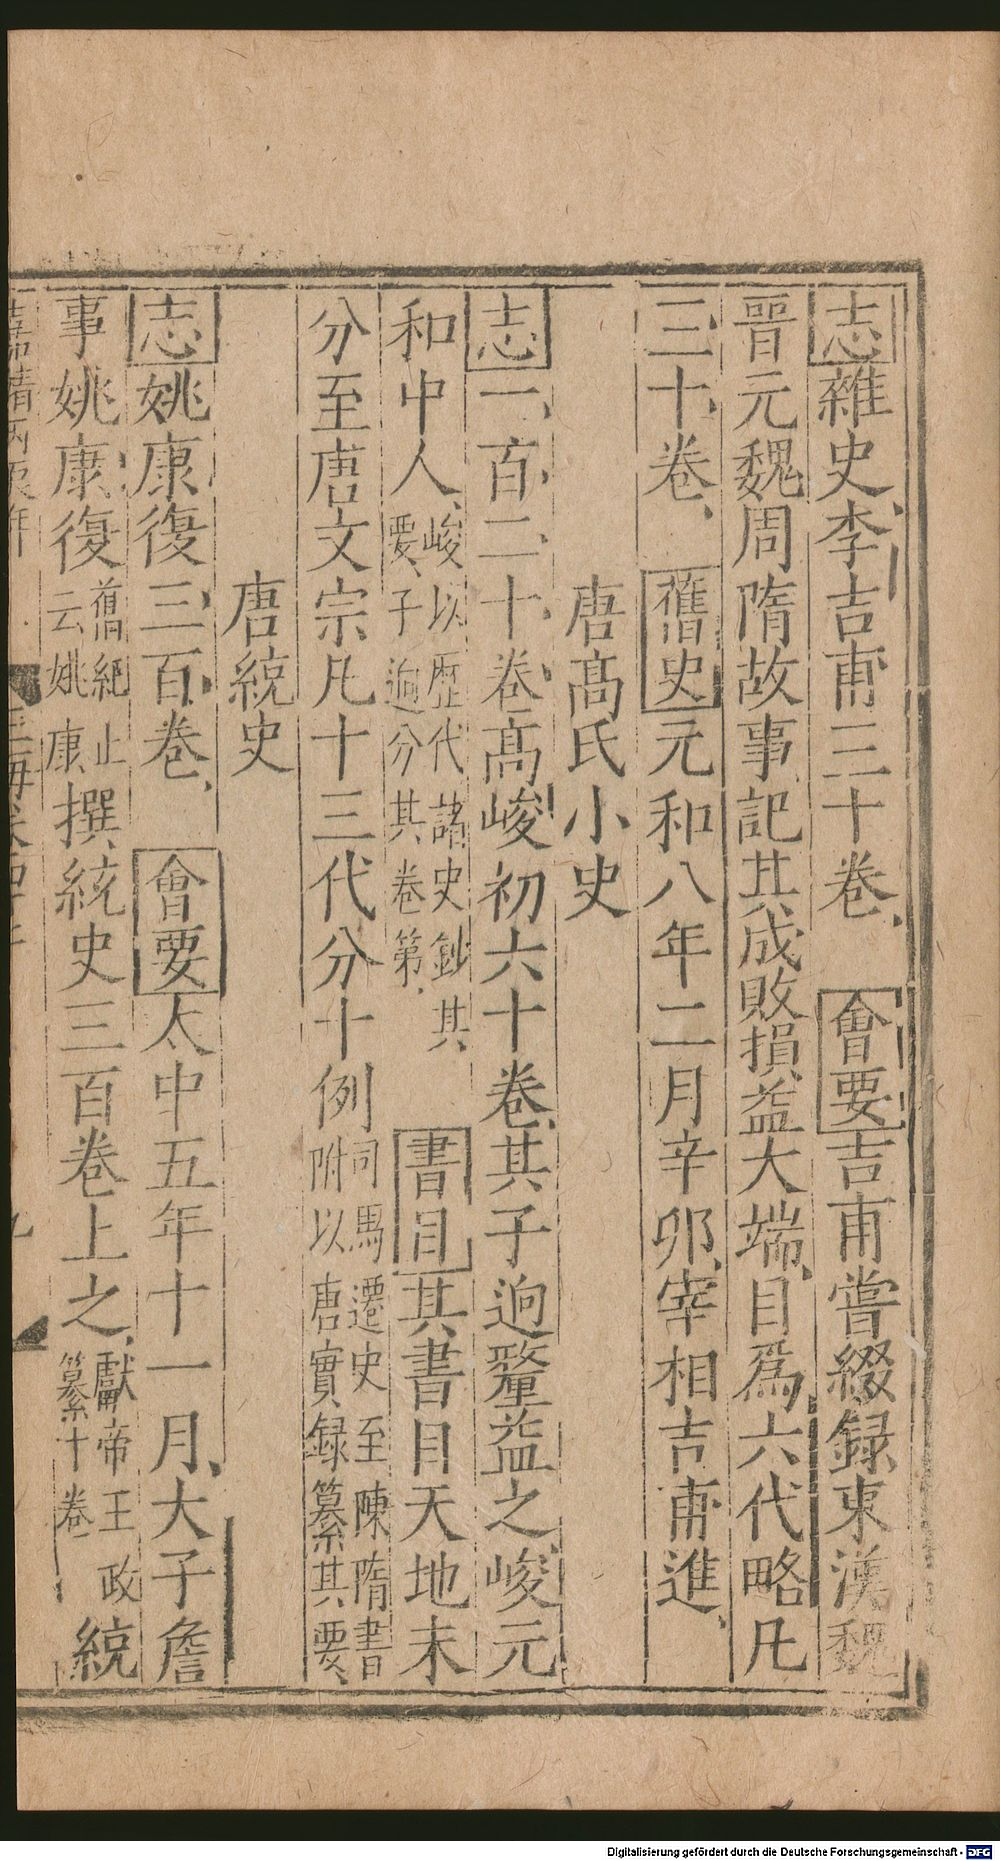 志雜史李吉甫三十卷、會要吉甫嘗綴録東漢魏
晉元魏周隋故事記其成敗損益大端、目爲六代略凡
三十卷、舊史元和八年二月辛卯、宰相吉甫進、
唐高氏小史
志一百二十卷高峻初六十卷、其子迥釐益之、峻元
和中人、峻以歷代諸史鈔其
要、子迥分其卷第、書目其書目天地未
分至唐文宗凡十三代分十例司馬遷史至陳隋書
附以唐實録纂其要、
唐統史
志姚康復三百卷、會要大中五年十一月、大子詹
事姚康復舊紀止
云姚康、撰統史三百卷上之、獻帝王政
纂十卷統
嘉靖丙辰年
玉海卷四十
九
Digitalisierung gefördert durch die Deutsche Forschungsgemeinschaft - DFG